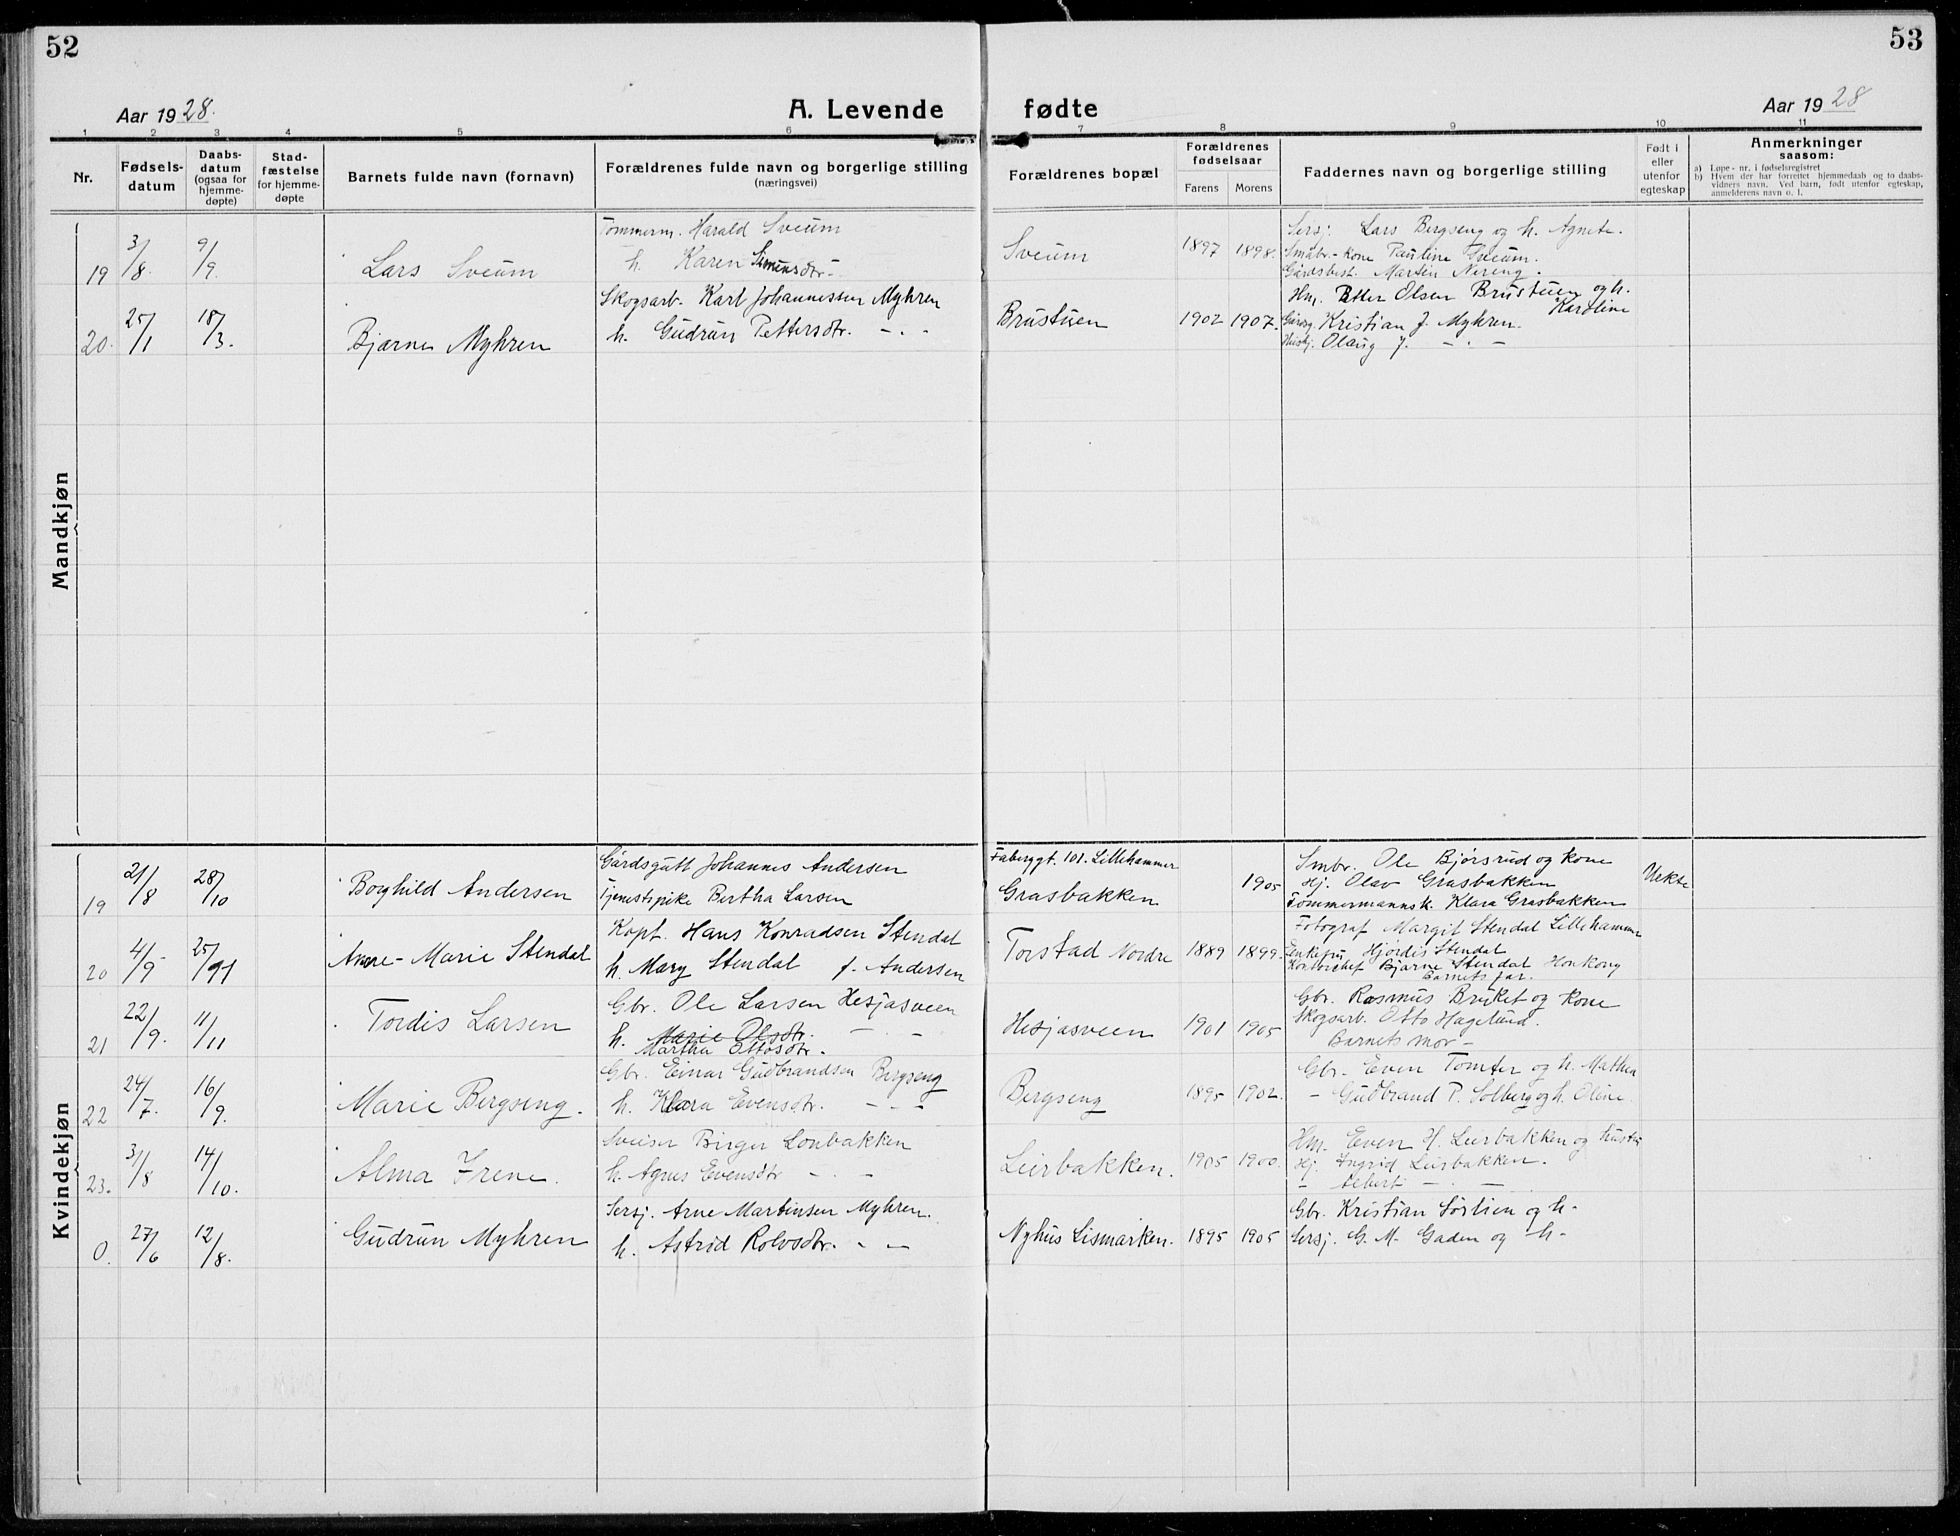 52
53
Aar 1928.
A. Levende fødte
Aar 1928
1 2 3 4 5 6 7 8 9 10 11
Nr.
Fødsels-
datum
Daabs-
datum
(ogsaa for
hjemme-
døpte)
Stad-
fæstelse
for hjemme-
døpte
Barnets fulde navn (fornavn)
Forældrenes fulde navn og borgerlige stilling
(næringsvei)
Forældrenes bopæl
Forældrenes
fødselsaar
Farens Morens
Faddernes navn og borgerlige stilling
Født i
eller
utenfor
egteskap
Anmerkninger
saasom:
a) Løpe-nr. i fødselsregistret
b) Hvem der har forrettet hjemmedaab og to daabs-
vidners navn. Ved barn, født utenfor egteskap,
anmelderens navn o. l.
Mandkjøn
19 3/8. 9/9. Lars Sveum
Tømmerm. Harald Sveum
h. Karen Simensdtr. -
Sveum 1897 1898.
Sersj. Lars Bergseng og h. Agnete.
Småbr.-kone Pauline Sveum.
Gårdsbest. Martin Nereng.
20. 25/1 18/3. Bjarne Myhren
Skogsarb. Karl Johannessen Myhren
h. Gudrun Pettersdtr. - . -
Brustuen 1902 1907.
Hm. Petter Olsen Brustuen og h.
Karoline
Gårdsg. Kristian J. Myhren.
Huskj. Olaug J. - . -
Kvindekjøn
19 21/8 28/10 Borghild Andersen
Gårdsgutt Johannes Andersen
Tjenestpike Bertha Larsen
Fabergt. 101. Lillehammer
Grasbakken 1905
Smbr. Ole Bjørsrud og kone
Hj. Olav Grasbakken
Tømmermannsk. Klara Grasbakken
Uekte
20 4/9- 25/11 Anne-Marie Stendal
Kapt. Hans Konradsen Stendal
h. Mary Stendal f. Andersen
Torstad Nordre 1889 1899.
Fotograf Margit Stendal Lillehammer
Enkefru Hjørdis Stendal
Kontorchef Bjarne Stendal Honkong
Barnets far.
21 22/9. 11/11 Tordis Larsen
Gbr. Ole Larsen Hesjasveen
h. Marie Olsdtr. - . -
Martha Ottosdtr.
Hesjasveen 1901 1905
Gbr. Rasmus Bruket og kone
Skogsarb. Otto Hagelund.
Barnets mor -
22 24/7. 16/9. Marie Bergseng.
Gbr. Einar Gudbrandsen Bergseng
h. Klara Evensdtr. - - -
Bergseng 1895 1902.
Gbr. Even Tomter og h. Mathea
- Gudbrand P. Solberg og h. Oline.
23. 31/8 14/10. Alma Irene.
Sveiser Birger Lonbakken
h. Agnes Evensdtr - . -
Leirbakken. 1905 1900.
Hm. Even H. Leirbakken og hustru
Hj. Ingrid Leirbakken.
- Albert - . -
0. 27/6 12/8. Gudrun Myhren
Sersj. Arne Martinsen Myhren.
h. Astrid Rolvsdtr. - -
Nyhus Lismarken. 1895 1905
Gbr. Kristian Sørlien og h-
Sersj. G. M. Gaden og h-